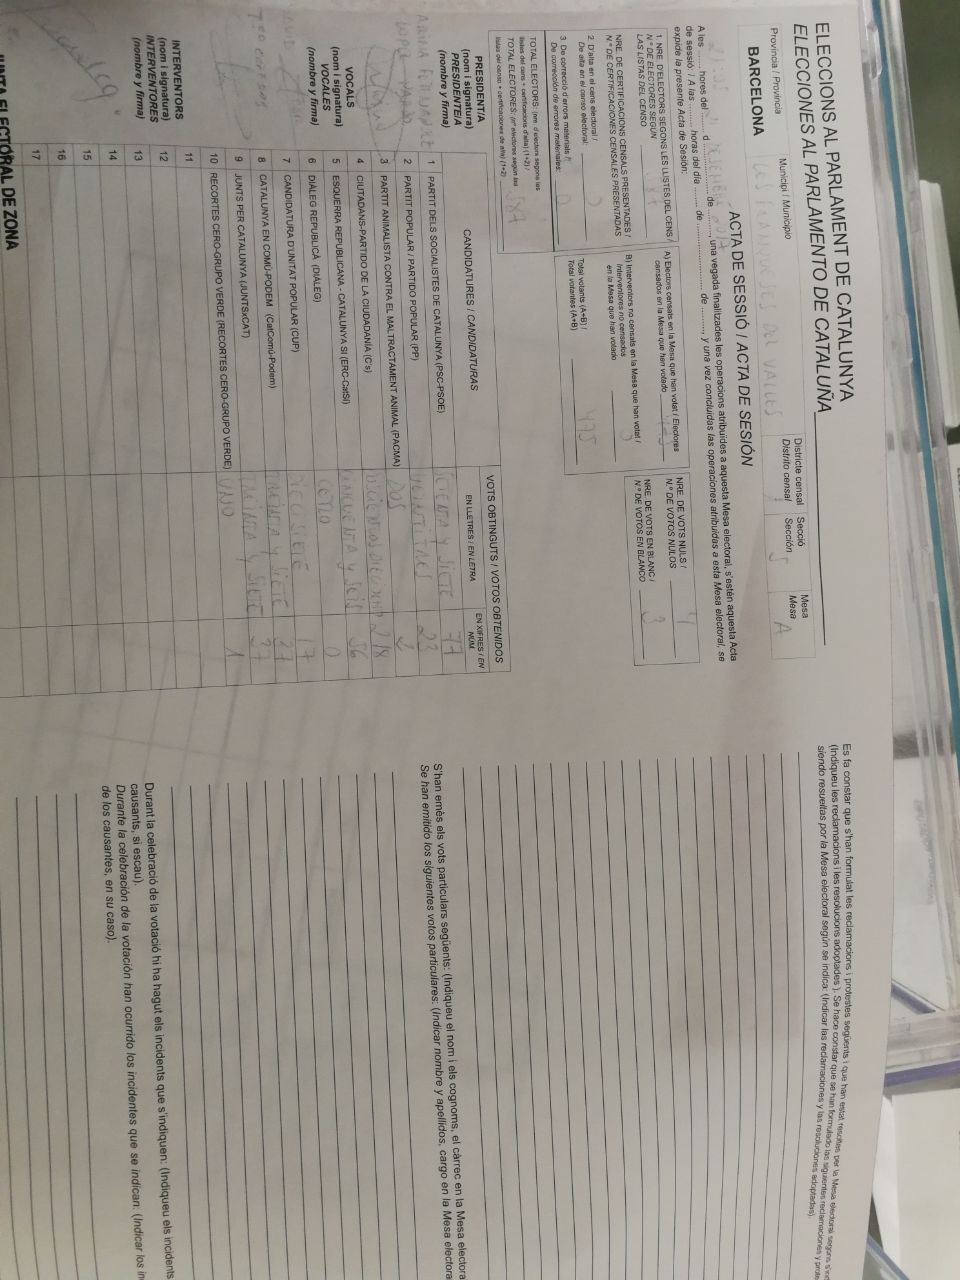 ELECCIONS AL PARLAMENT DE CATALUNYA
ELECCIONES AL PARLAMENTO DE CATALUÑA
Província / Provincia
Municipi / Municipio
Districte censal
Distrito censal
Secció
Sección
Mesa
Mesa
BARCELONA
LES FRANQUESES DEL VALLES
1
5
A
ACTA DE SESSIÓ / ACTA DE SESIÓN
A les ........ hores del ........ d ........ de ........, una vegada finalitzades les operacions atribuïdes a aquesta Mesa electoral, s'estén aquesta Acta
de sessió. / A las ........ horas del día ........ de ........ de ........, y una vez concluidas las operaciones atribuidas a esta Mesa electoral, se
expide la presente Acta de Sesión.
1. NRE. D'ELECTORS SEGONS LES LLISTES DEL CENS /
Nº DE ELECTORES SEGÚN
LAS LISTAS DEL CENSO
NRE. DE CERTIFICACIONS CENSALS PRESENTADES /
Nº DE CERTIFICACIONES CENSALES PRESENTADAS
2. D'alta en el cens electoral /
De alta en el censo electoral:
3. De correcció d'errors materials /
De corrección de errores materiales:
0
TOTAL ELECTORS: (nre. d'electors segons les
llistes del cens + certificacions d'alta) (1+2) /
TOTAL ELECTORES: (nº electores según las
listas del censo + certificaciones de alta) (1+2)
A) Electors censats en la Mesa que han votat / Electores
censados en la Mesa que han votado
475
B) Interventors no censats en la Mesa que han votat /
Interventores no censados
en la Mesa que han votado
Total votants (A+B) /
Total votantes (A+B)
475
NRE. DE VOTS NULS /
Nº DE VOTOS NULOS
NRE. DE VOTS EN BLANC /
Nº DE VOTOS EN BLANCO
3
CANDIDATURES / CANDIDATURAS
VOTS OBTINGUTS / VOTOS OBTENIDOS
EN LLETRES / EN LETRA
EN XIFRES / EN NÚM.
1 PARTIT DELS SOCIALISTES DE CATALUNYA (PSC-PSOE) SETENTA Y SIETE 77
2 PARTIT POPULAR / PARTIDO POPULAR (PP) VEINTITRES 23
3 PARTIT ANIMALISTA CONTRA EL MALTRACTAMENT ANIMAL (PACMA) DOS 2
4 CIUTADANS-PARTIDO DE LA CIUDADANÍA (C's) 218
5 ESQUERRA REPUBLICANA - CATALUNYA SÍ (ERC-CatSí) CINCUENTA Y SEIS 56
6 DIÀLEG REPUBLICÀ (DIÀLEG) CERO 0
7 CANDIDATURA D'UNITAT POPULAR (CUP)
8 CATALUNYA EN COMÚ-PODEM (CatComú-Podem)
9 JUNTS PER CATALUNYA (JUNTSxCAT) TREINTA Y SIETE 37
10 RECORTES CERO-GRUPO VERDE (RECORTES CERO-GRUPO VERDE) UNO 1
11
12
13
14
15
16
17
PRESIDENT/A
(nom i signatura)
PRESIDENTE/A
(nombre y firma)
VOCALS
(nom i signatura)
VOCALES
(nombre y firma)
INTERVENTORS
(nom i signatura)
INTERVENTORES
(nombre y firma)
JUNTA ELECTORAL DE ZONA
Es fa constar que s'han formulat les reclamacions i protestes següents i que han estat resoltes per la Mesa electoral segons s'indica
(Indiqueu les reclamacions i les resolucions adoptades). Se hace constar que se han formulado las siguientes reclamaciones y
siendo resueltas por la Mesa electoral según se indica: (Indicar las reclamaciones y las resoluciones adoptadas).
S'han emès els vots particulars següents: (Indiqueu el nom i els cognoms, el càrrec en la Mesa
Se han emitido los siguientes votos particulares: (Indicar nombre y apellidos, cargo en la Mesa
Durant la celebració de la votació hi ha hagut els incidents que s'indiquen: (Indiqueu els incidents
causants, si escau).
Durante la celebración de la votación han ocurrido los incidentes que se indican: (Indicar los
de los causantes, en su caso).